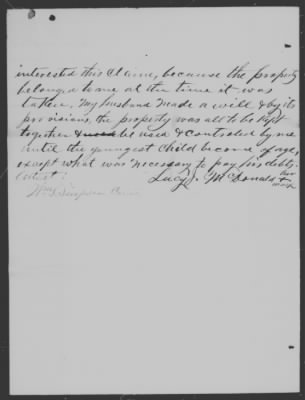 interested this Claim, because the property
belonged to me at the time it was
taken. My husband made a will & by its
provisions, the property was all to be kept
together & be used & controled by me
until the youngest child become of age,
except what was necessary to pay his debts.
Attest: Lucy J. McDonald her
x
mark